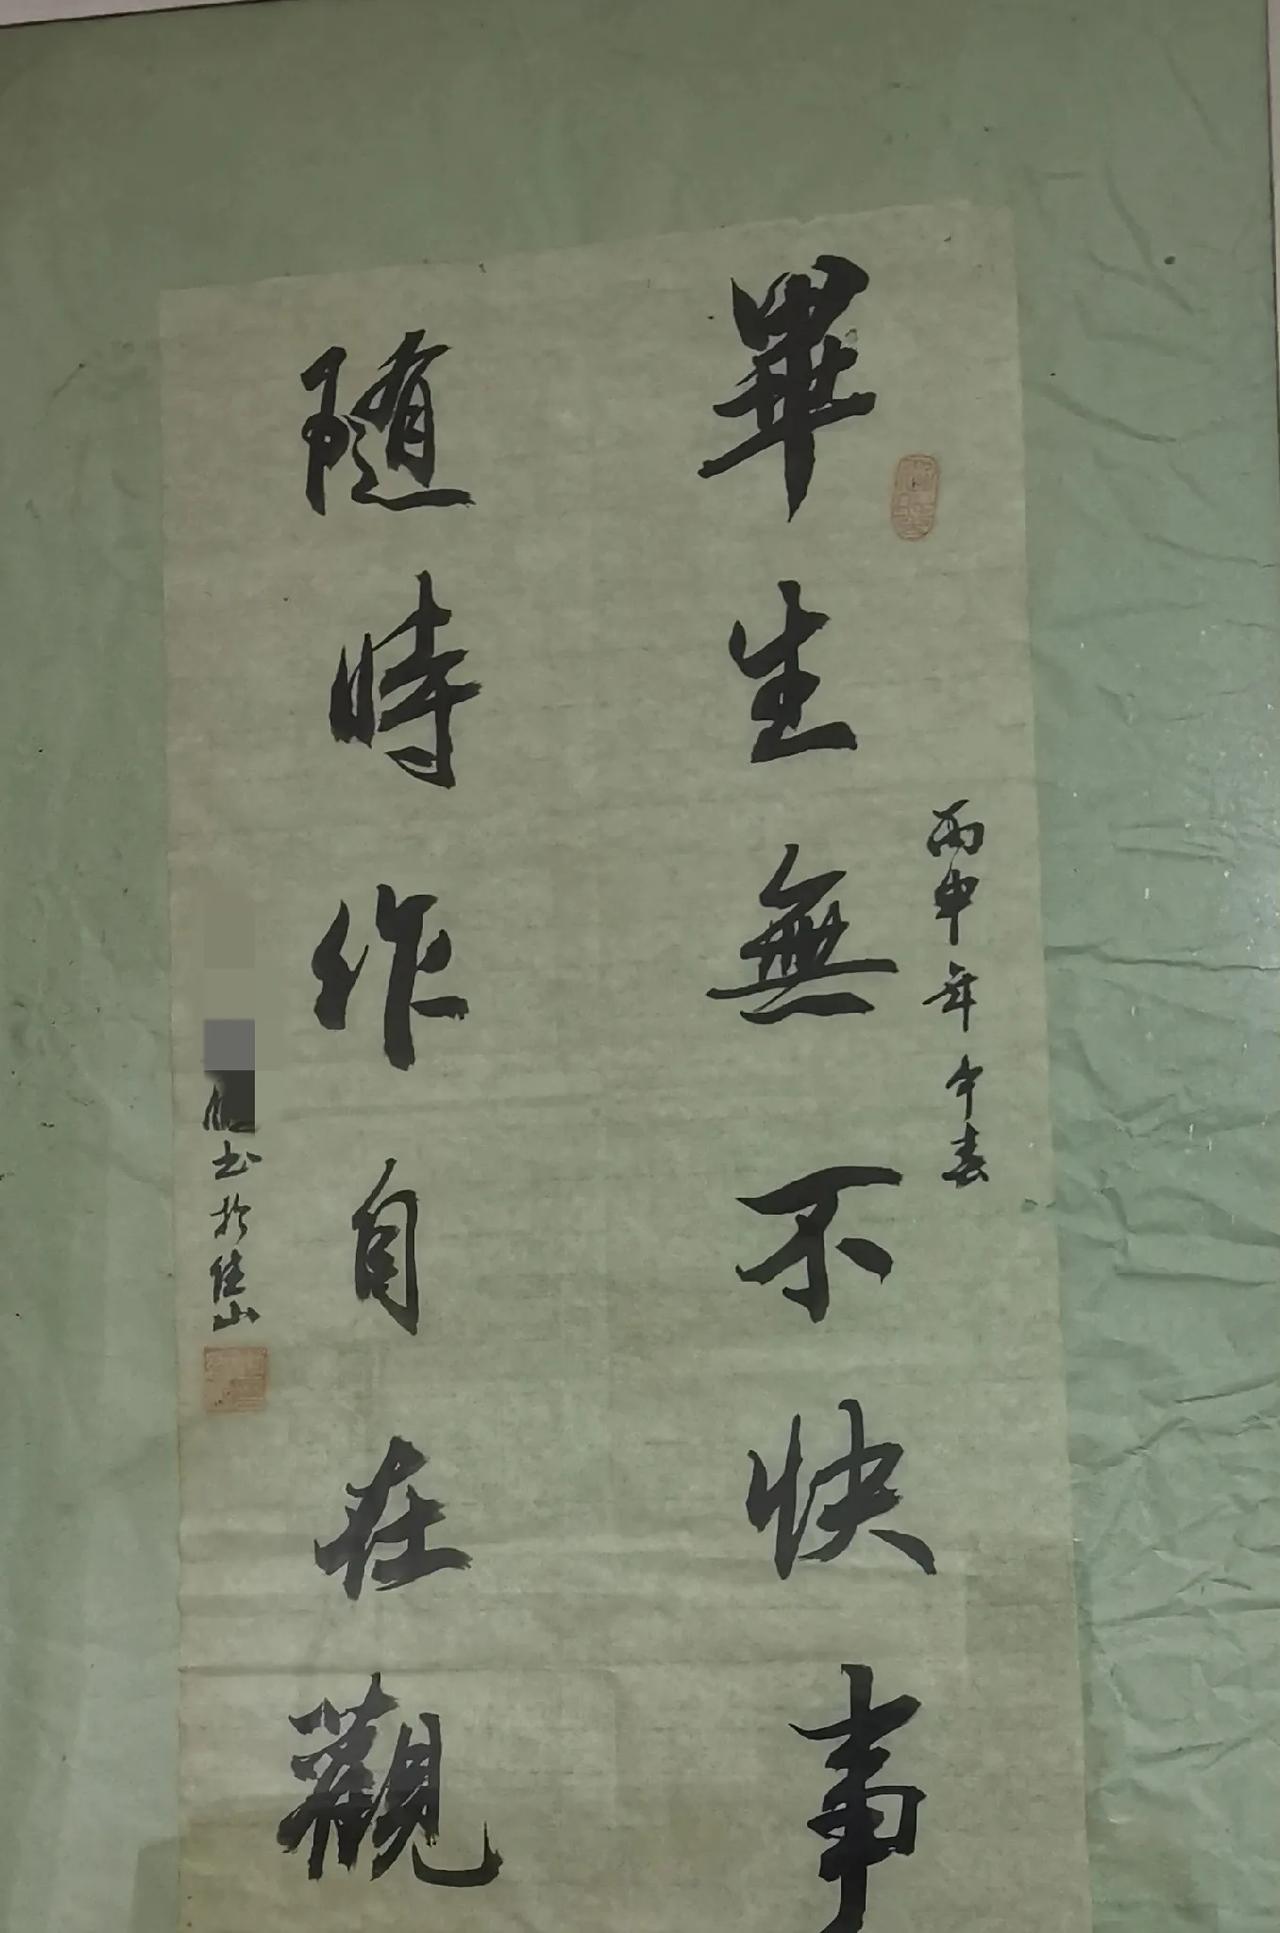 丙申年午春
畢生無不快事
隨時作自在觀
書於佳山